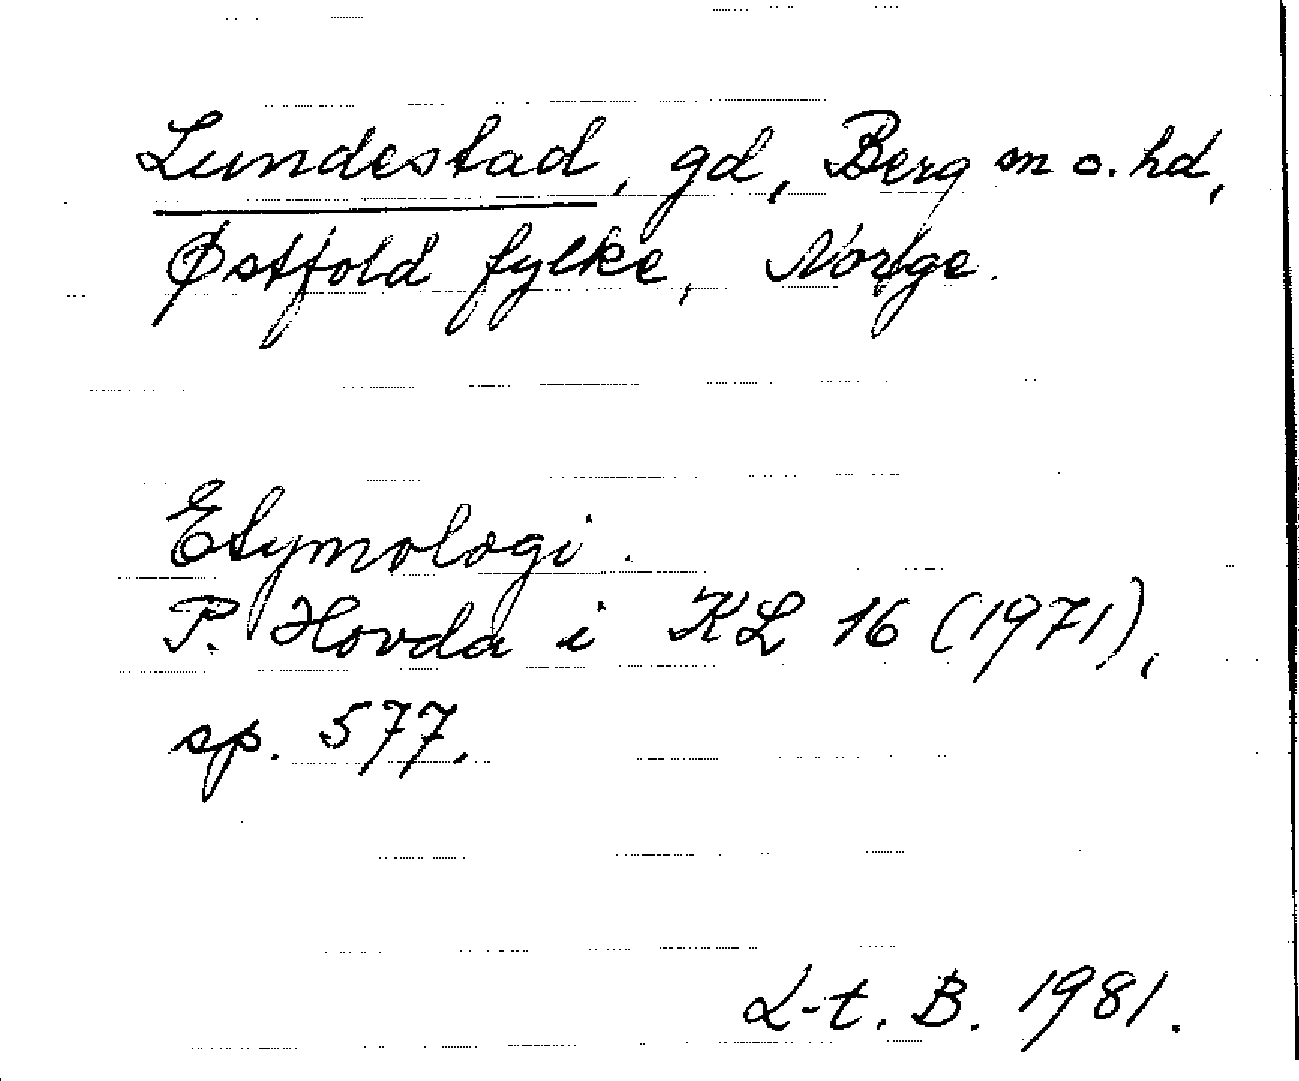 Lundestad, gd, Berg sn o. hd,
Østfold fylke, Norge.
Etymologi.
P. Hovda i KL 16 (1971),
sp. 577.
L-t. B. 1981.